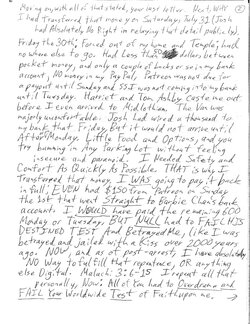 Moving on, with all of that stated, your last letter. Next, With ②
I had Transferred that money on Saturday, July 31 (Josh
had Absolutely No Right in relaying that detail publicly).
Friday the 30th, Forced out of my home and Temple, had
no where else to go. Had less than 50 dollars between
pocket money, and only a couple of bucks or so in my bank
account. NO money in my PayPal. Patreon was not due for
a payout until Sunday and SSI was not coming into my bank
until Tuesday. Harriet and Tom Ashby caste me out
before I even arrived to Mechanham. The Van was
majorly uncomfortable. Josh wired a thousand to
my bank that Friday, but it would not arrive until
after Monday. Little Food and Options, and you
try bumming in Any Parking Lot without feeling
insecure and paranoid. I Needed Safety and
Comfort As Quickly As Possible. THAT is why I
Transferred that money. I WAS going to pay it back
in full, EVEN had $150 from Patreon on Sunday
the 1st that went Straight to Barbie Chan's bank
account. I WOULD have paid the remaining 600
Monday or Tuesday, BUT Null had to FAIL HIS
DESTINED TEST And Betrayed Me, like I was
betrayed and jailed with a Kiss over 2000 years
ago. NOW, and as of post-arrest, I have absolutely
NO Way to fulfill that repentance, OR anything
else Digital. Malachi 3:6-15 I repeat all that
personally, Now: All of You had to Overdraw and
FAIL Your Worldwide Test of Faith upon me.